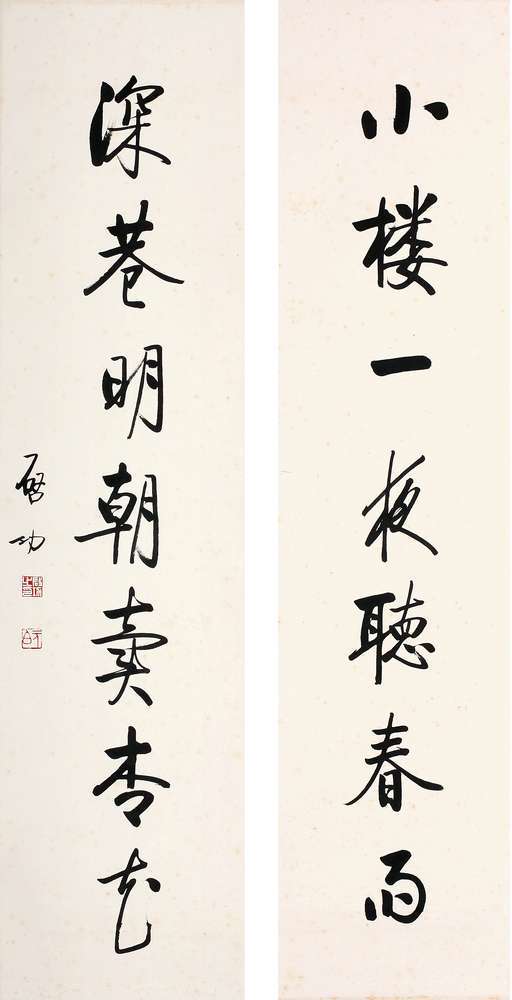 小楼一夜聽春雨
深巷明朝賣杏花
啓功